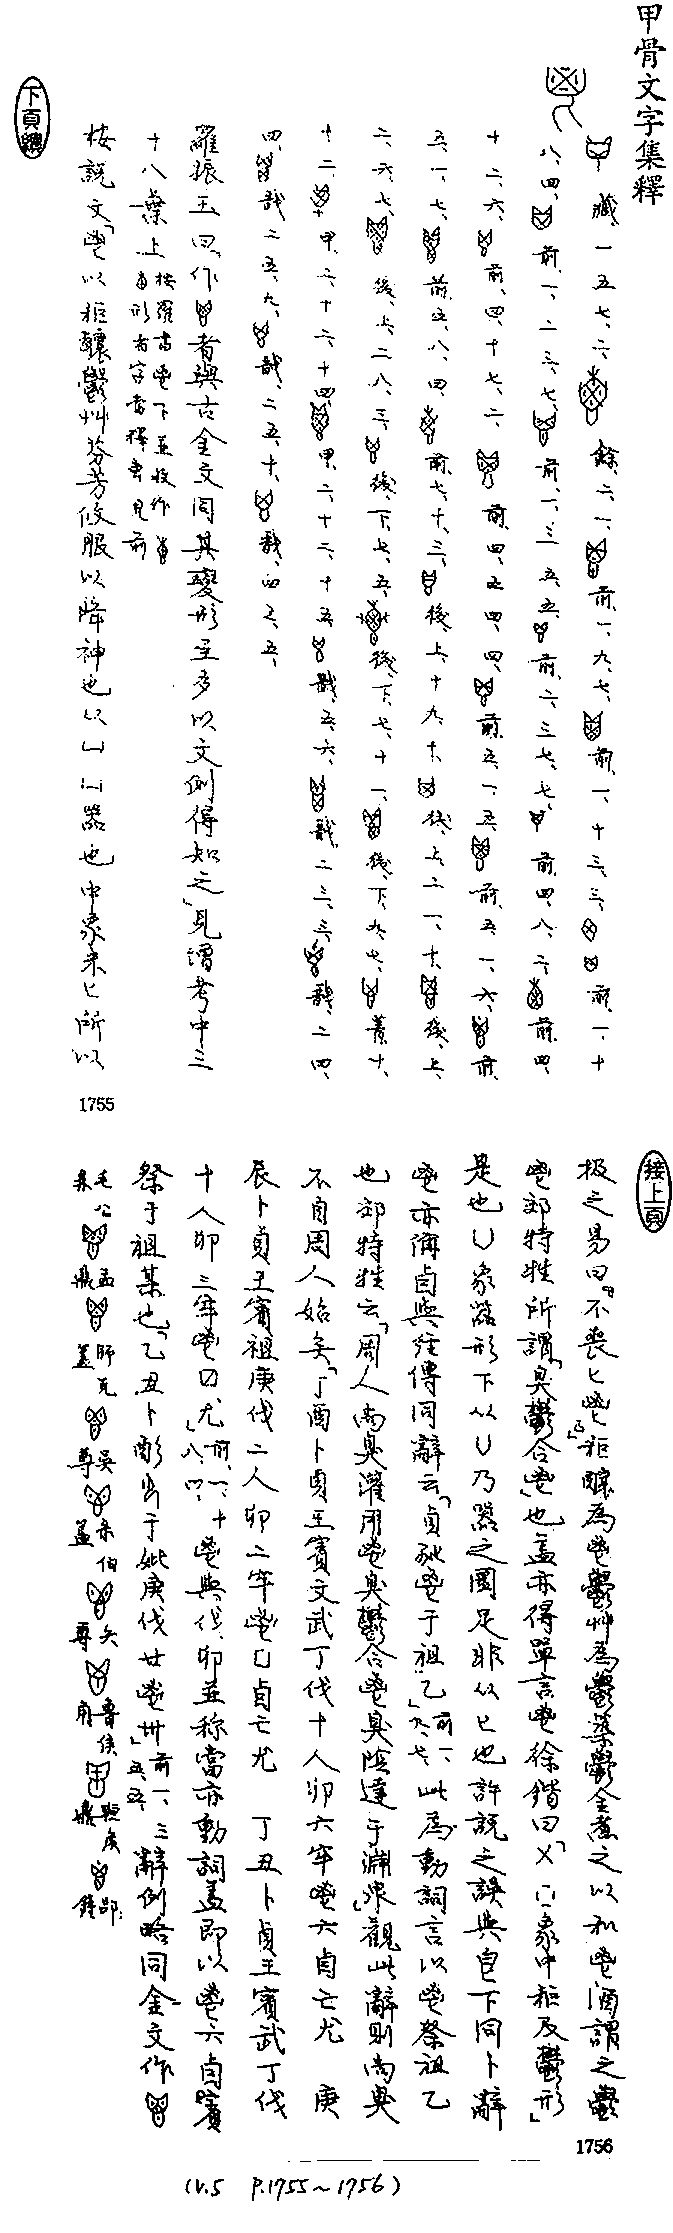 甲骨文字集釋
藏、一五七、二、 餘、六、一、 前、一、九、七、 前、一、十三、三、 前、一、十
八、四、 前、一、二三、七、 前、一、三五、五、 前、六、三七、七、 前、四、八、二、 前、四、
十二、六、 前、四、十七、二、 前、四、五四、四、 前、五、一、五、 前、五、一、六、 前、
五、一、七、 前、五、八、四、 前、七、十、三、 後、上、十九、十、 後、上、二一、十、 後、上、
二六、七、 後、上、二八、三、 後、下、七、五、 後、下、七、十一、 後、下、九、七、 菁、十、
十二、 甲、二、十六、十四、 甲、二、十二、十五、 戩、五、六、 戩、二三、三、 戩、二四、
四、 戩、二五、九、 戩、二五、十、 戩、四三、五、
羅振玉曰「作 者與古金文同其變形至多以文例得知之」見增考中三
十八葉上 按羅書鬯下並收作 形者字當釋 見前
按說文「鬯以秬釀鬱艸芬芳攸服以降神也从凵凵器也中象米匕所以
下頁續
1755
接上頁
扱之易曰『不喪匕鬯』秬釀為鬯鬱艸為鬱築鬱金煮之以和鬯酒謂之鬱
鬯郊特牲所謂「臭鬱合鬯」也蓋亦得單言鬯徐鍇曰「乂 象中秬及鬱形」
是也凵象器形下从 乃器之圈足非从匕也許說之誤與皀下同卜辭
鬯亦偁卣與經傳同辭云「貞 鬯于祖乙」前、一、九、七、此為動詞言以鬯祭祖乙
也郊特牲云「周人尚臭灌用鬯臭鬱合鬯臭陰達于淵泉」觀此辭則尚臭
不自周人始矣「丁酉卜貞王賓文武丁伐十人卯六牢鬯六卣亡尤 庚
辰卜貞王賓祖庚伐二人卯二牢鬯 卣亡尤 丁丑卜貞王賓武丁伐
十人卯三牢鬯 尤」前、一、十八、四、鬯與伐、卯並稱當亦動詞蓋即以鬯六卣賓
祭于祖某也「乙丑卜 于妣庚伐廿鬯卅」前、一、三五、五、辭例略同金文作
毛公鼎 盂鼎 師克盨 吳尊蓋 彔伯 夨尊 魯侯 鼎 鐘
1756
(V.5 P.1755～1756)